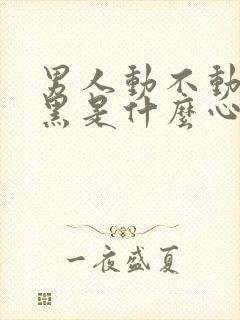 男人動不動
黑是什麼心
一夜盛夏